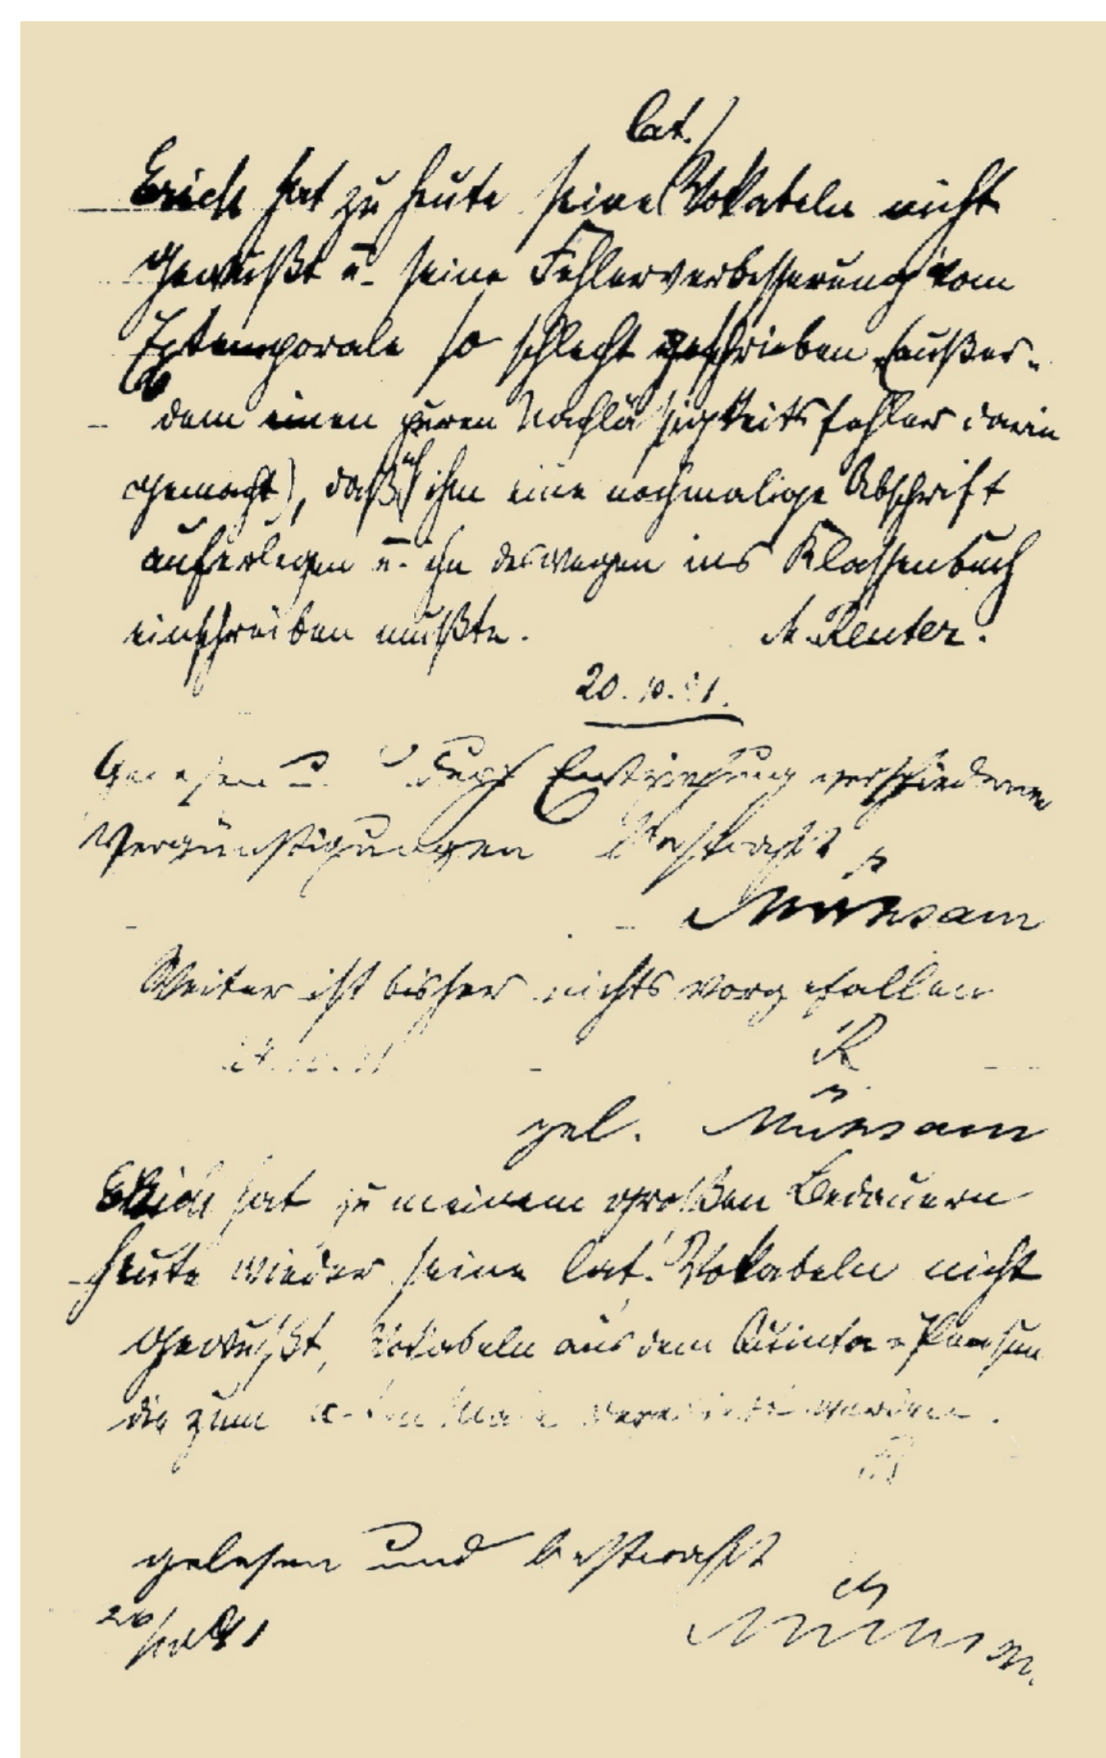 lat.
Erich hat zu heute seine Vokabeln nicht
gewußt u. seine Fehlerverbesserung vom
Extemporale so schlecht geschrieben (außer-
dem einen puren Nachlässigkeitsfehler darin
gemacht), daß ich ihm eine nochmalige Abschrift
auferlegen u. ihn deswegen ins Klassenbuch
einschreiben mußte. Reuter.
20. 10. 91.
Gelesen u. durch Entziehung verschiedener
Vergünstigungen bestraft
Mühsam
Weiter ist bisher nichts vorgefallen
R
gel. Mühsam
Erich hat zu meinem großen Bedauern
heute wieder seine lat. Vokabeln nicht
gewußt, Vokabeln aus dem Quinta-Pensum
die zum Male werden.
R
gelesen und bestraft
26/10 91
Mühsam.